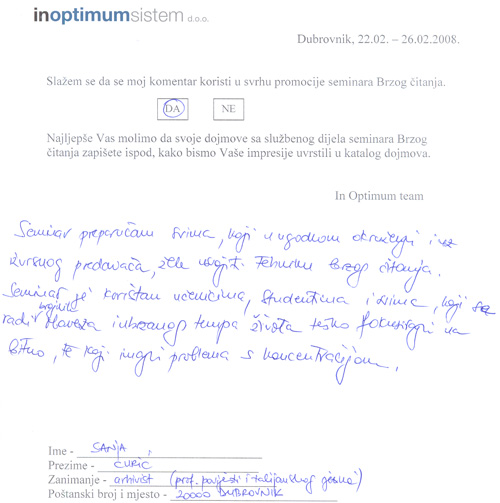 inoptimumsistem d.o.o.
Dubrovnik, 22.02. – 26.02.2008.
Slažem se da se moj komentar koristi u svrhu promocije seminara Brzog čitanja.
DA NE
Najljepše Vas molimo da svoje dojmove sa službenog dijela seminara Brzog
čitanja zapišete ispod, kako bismo Vaše impresije uvrstili u katalog dojmova.
In Optimum team
Seminar preporučam svima, koji u ugodnom okruženju i uz
izvrsnog predavača, žele usvojiti tehniku brzog čitanja.
Seminar je koristan učenicima, studentima i svima, koji se
brojnih
radi obaveza i ubrzanog tempa života teško fokusiraju na
bitno, te koji imaju problema s koncentracijom.
Ime - SANJA
Prezime - ĆURIĆ
Zanimanje - arhivist (prof. povijesti i talijanskog jezika)
Poštanski broj i mjesto - 20000 DUBROVNIK